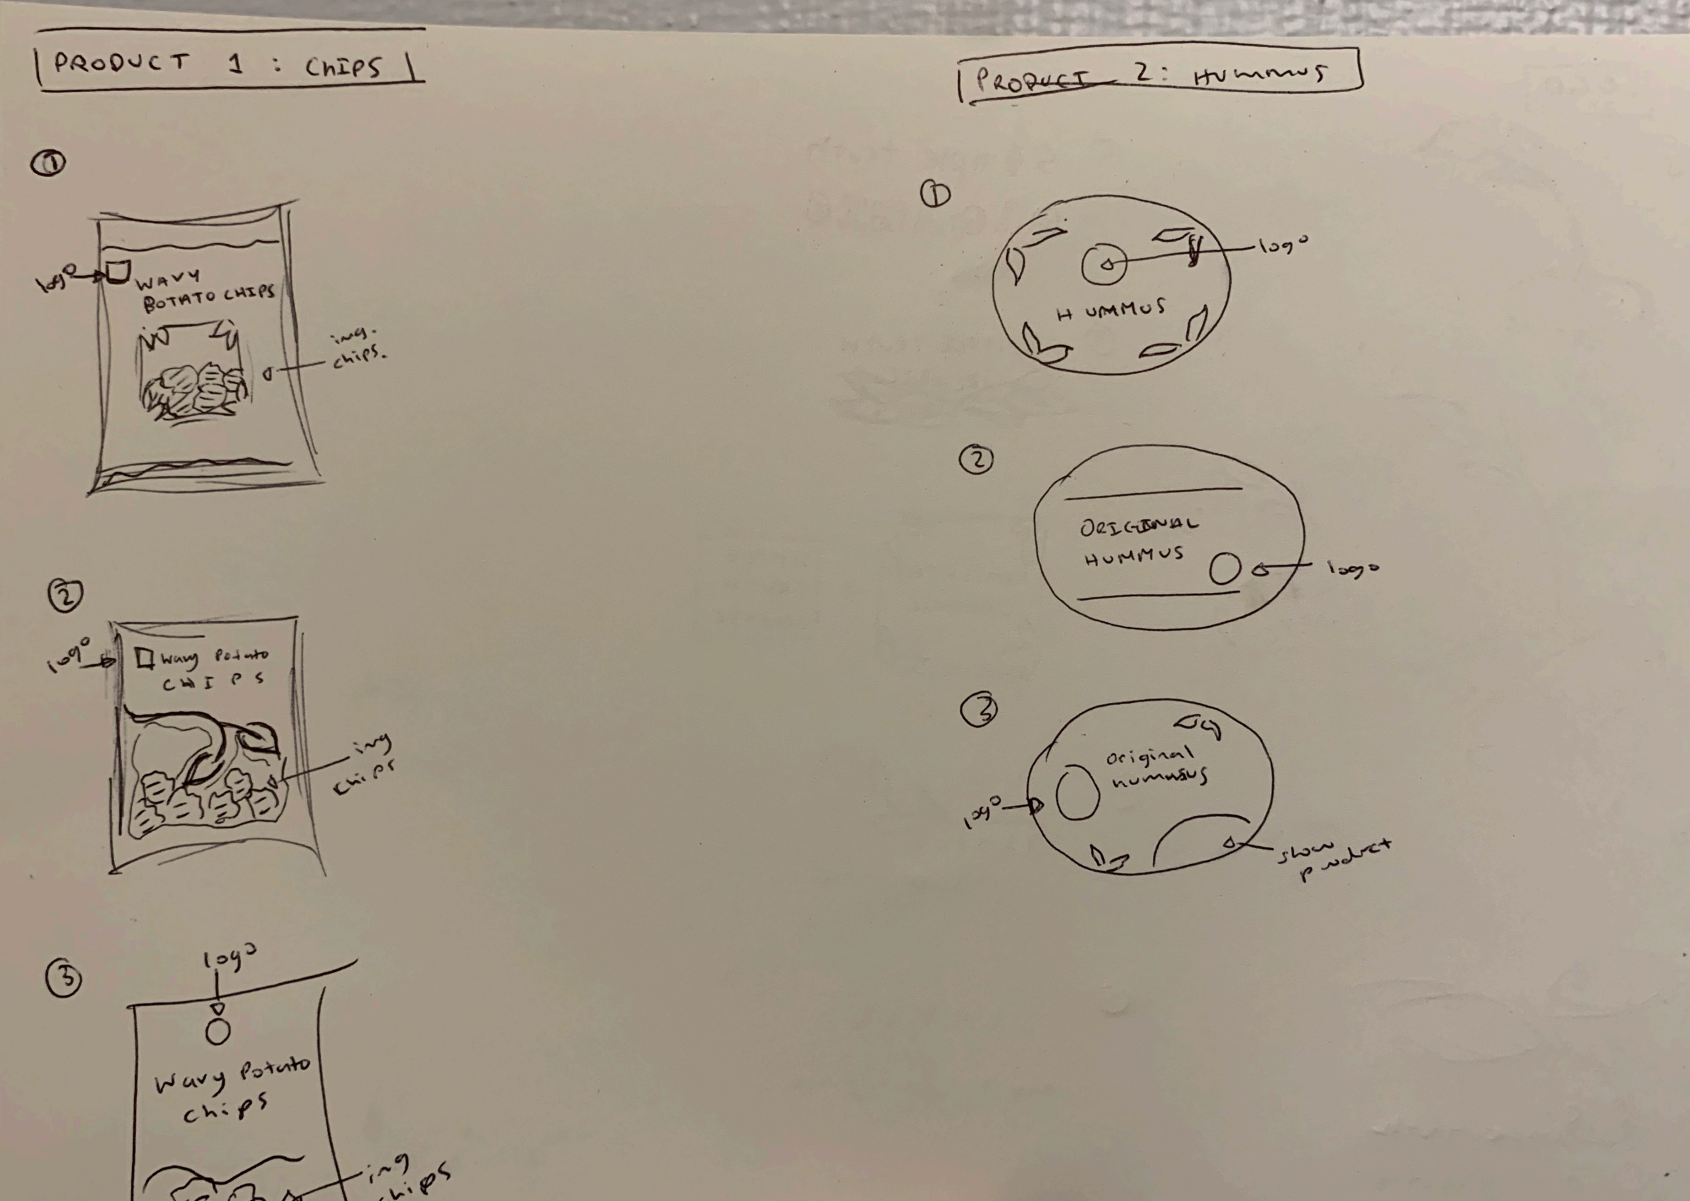 PRODUCT 1 : CHIPS
①
logo
WAVY
POTATO CHIPS
img.
chips.
②
logo
Wavy Potato
CHIPS
img
chips
③
logo
Wavy Potato
chips
img
chips
PRODUCT 2: HUMMUS
①
logo
HUMMUS
②
ORIGINAL
HUMMUS
logo
③
Original
Hummus
logo
show
product